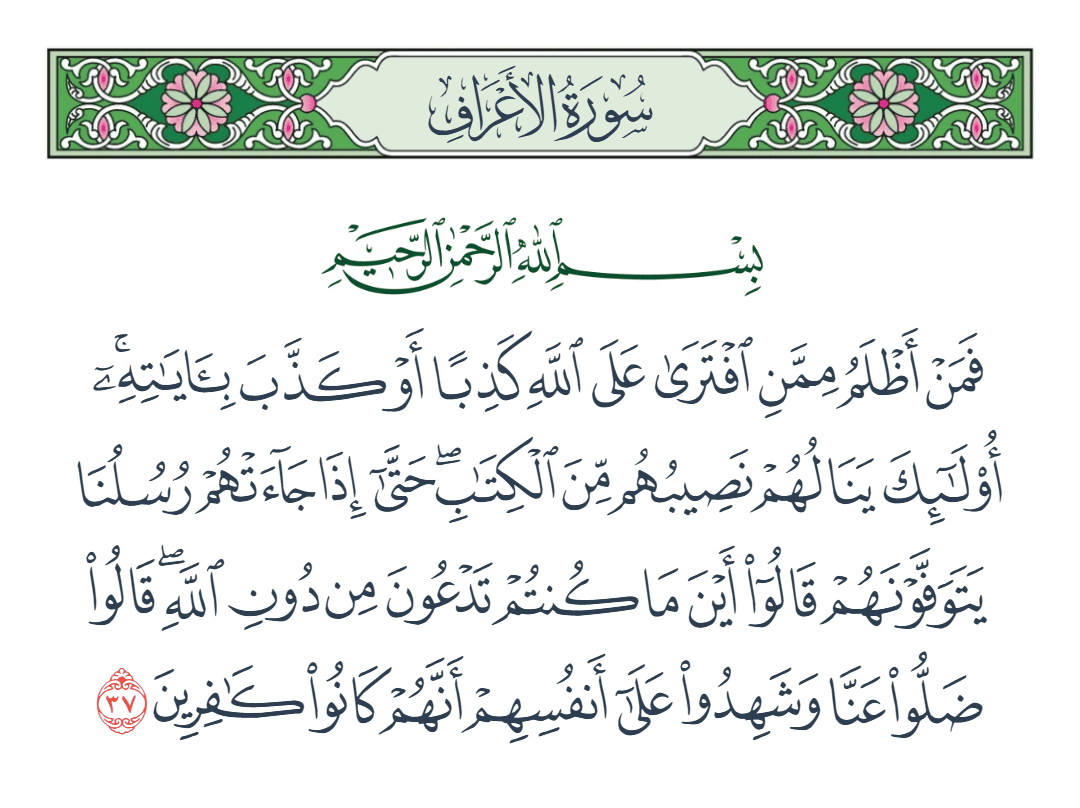 سُورَةُ الأَعْرَافِ
بِسْمِ ٱللَّهِ ٱلرَّحْمَٰنِ ٱلرَّحِيمِ
فَمَنْ أَظْلَمُ مِمَّنِ ٱفْتَرَىٰ عَلَى ٱللَّهِ كَذِبًا أَوْ كَذَّبَ بِـَٔايَـٰتِهِۦٓ ۚ
أُو۟لَـٰٓئِكَ يَنَالُهُمْ نَصِيبُهُم مِّنَ ٱلْكِتَـٰبِ ۖ حَتَّىٰٓ إِذَا جَآءَتْهُمْ رُسُلُنَا
يَتَوَفَّوْنَهُمْ قَالُوٓا۟ أَيْنَ مَا كُنتُمْ تَدْعُونَ مِن دُونِ ٱللَّهِ ۖ قَالُوا۟
ضَلُّوا۟ عَنَّا وَشَهِدُوا۟ عَلَىٰٓ أَنفُسِهِمْ أَنَّهُمْ كَانُوا۟ كَـٰفِرِينَ ٣٧